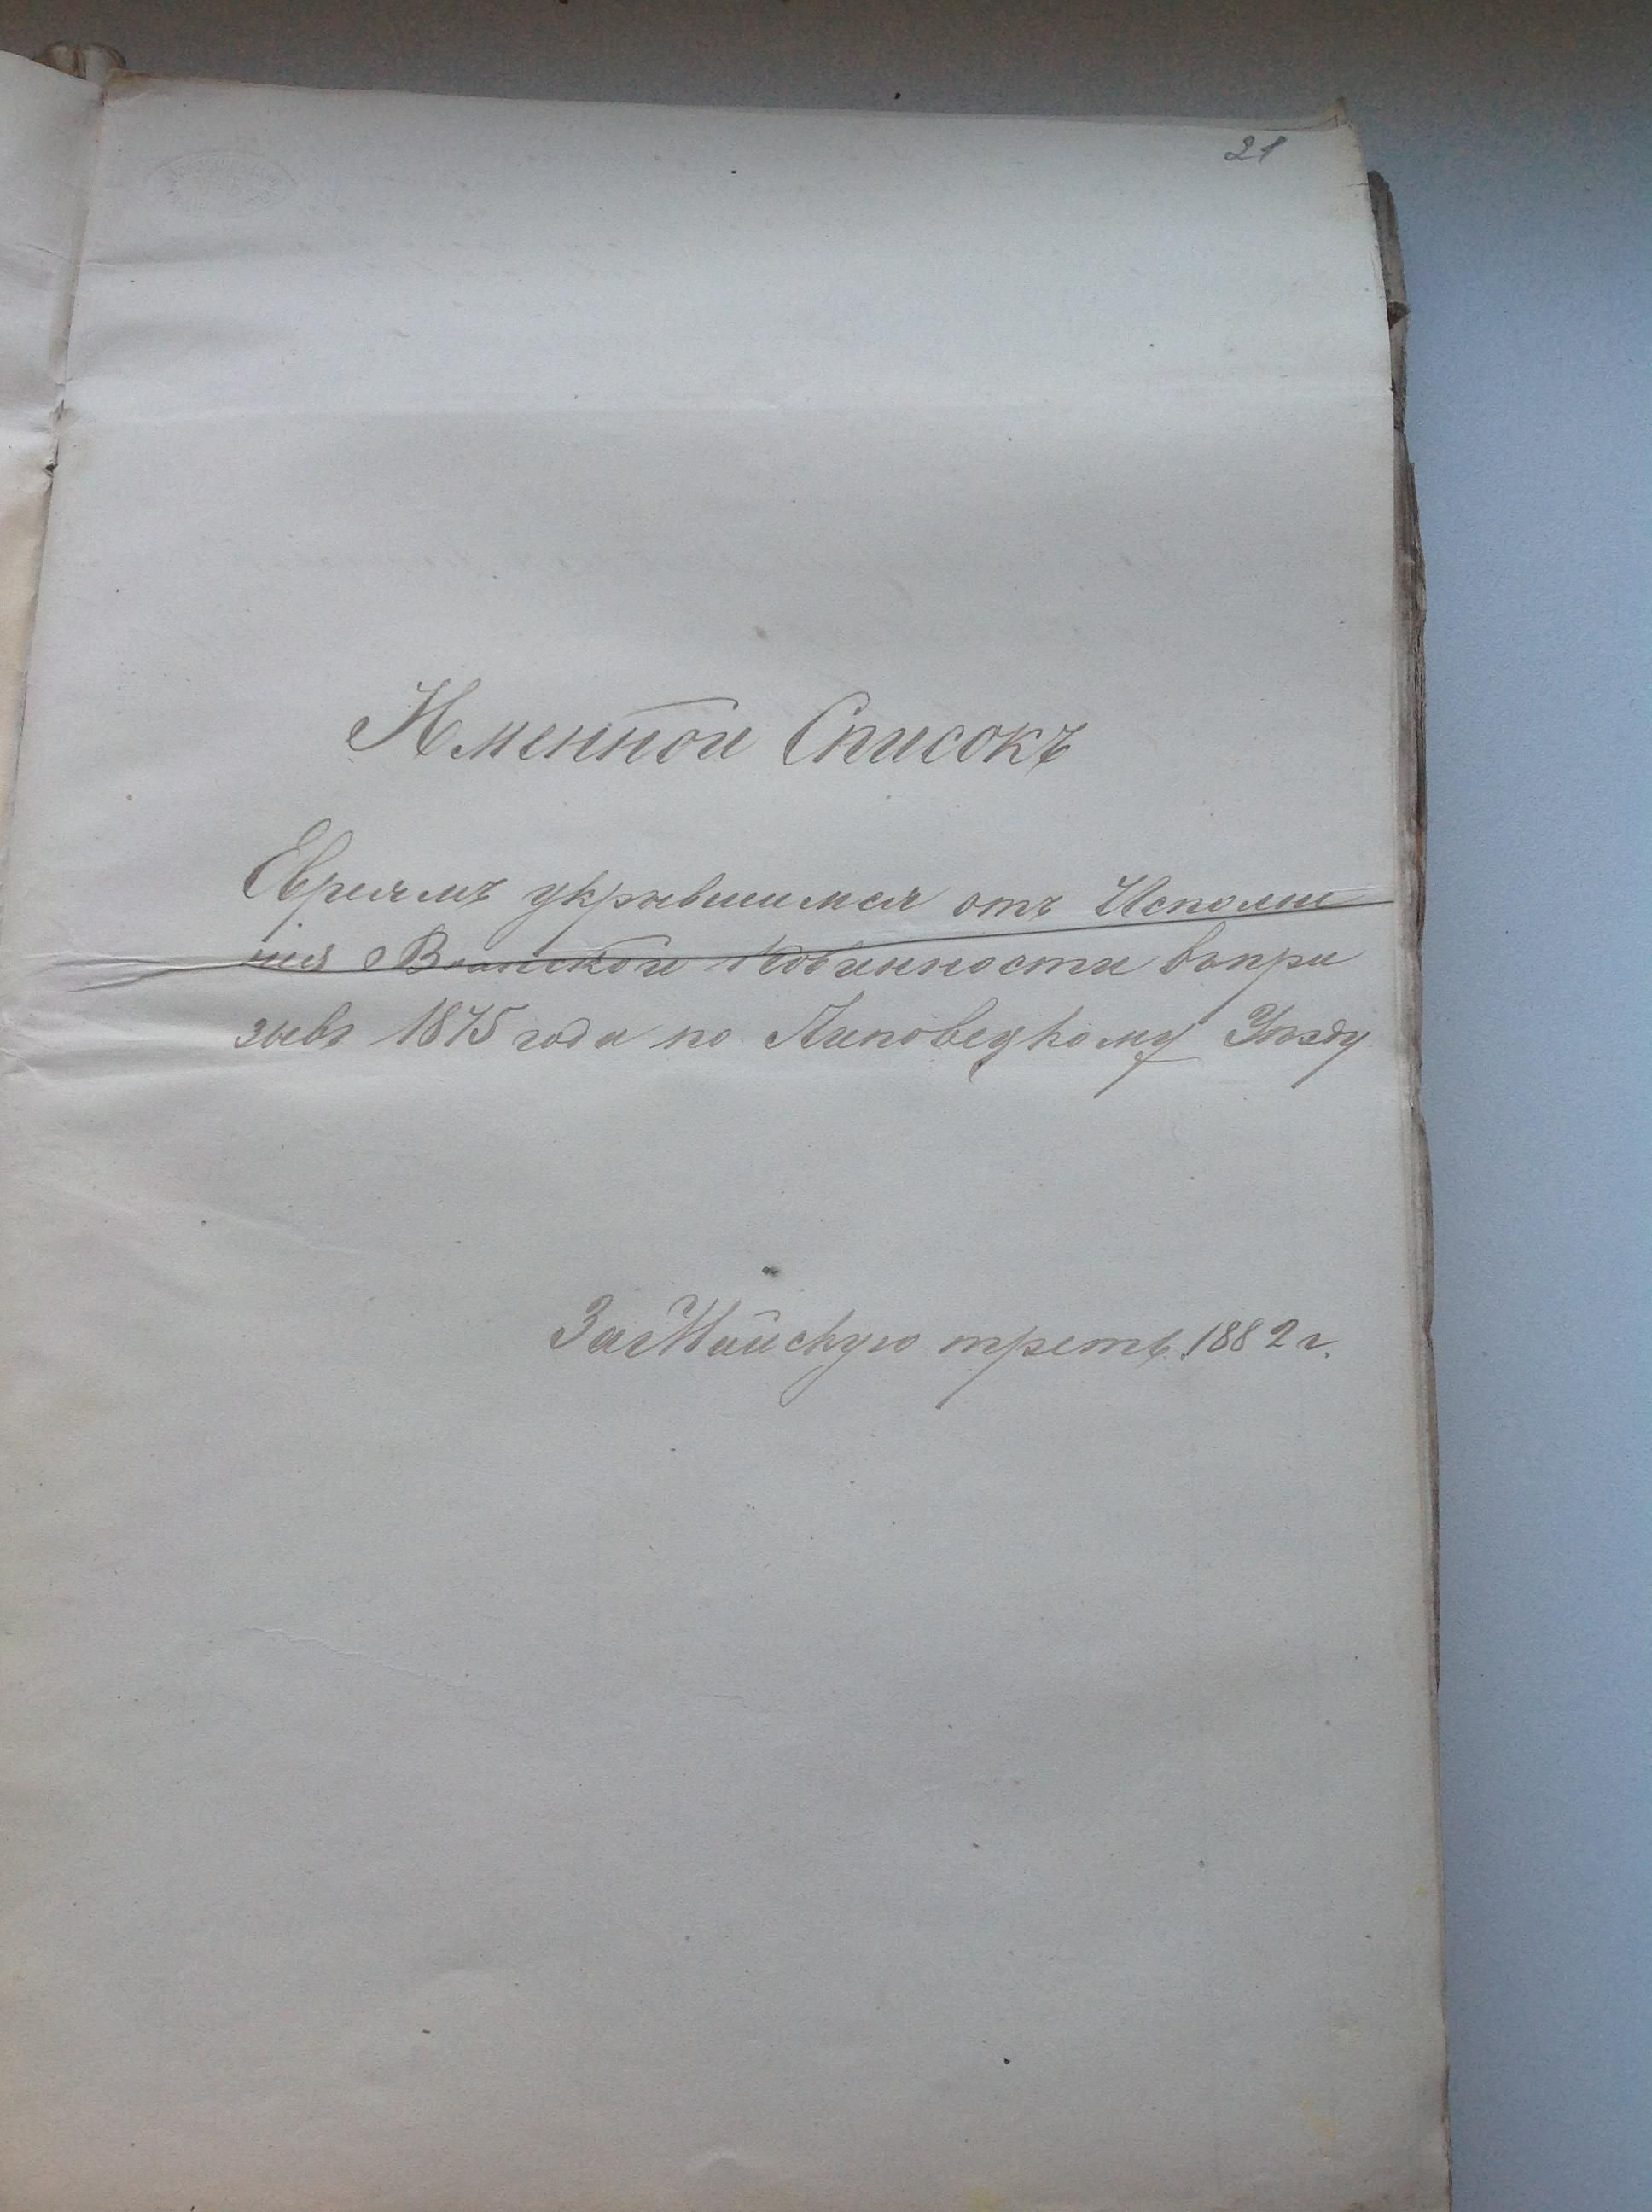 21
Именной Списокъ
Евреямъ укрывшимся отъ Исполне
нія Воинской Повинности въпри
зывъ 1875 года по Липовецкому Уѣзду
За Майскую треть 1882 г.